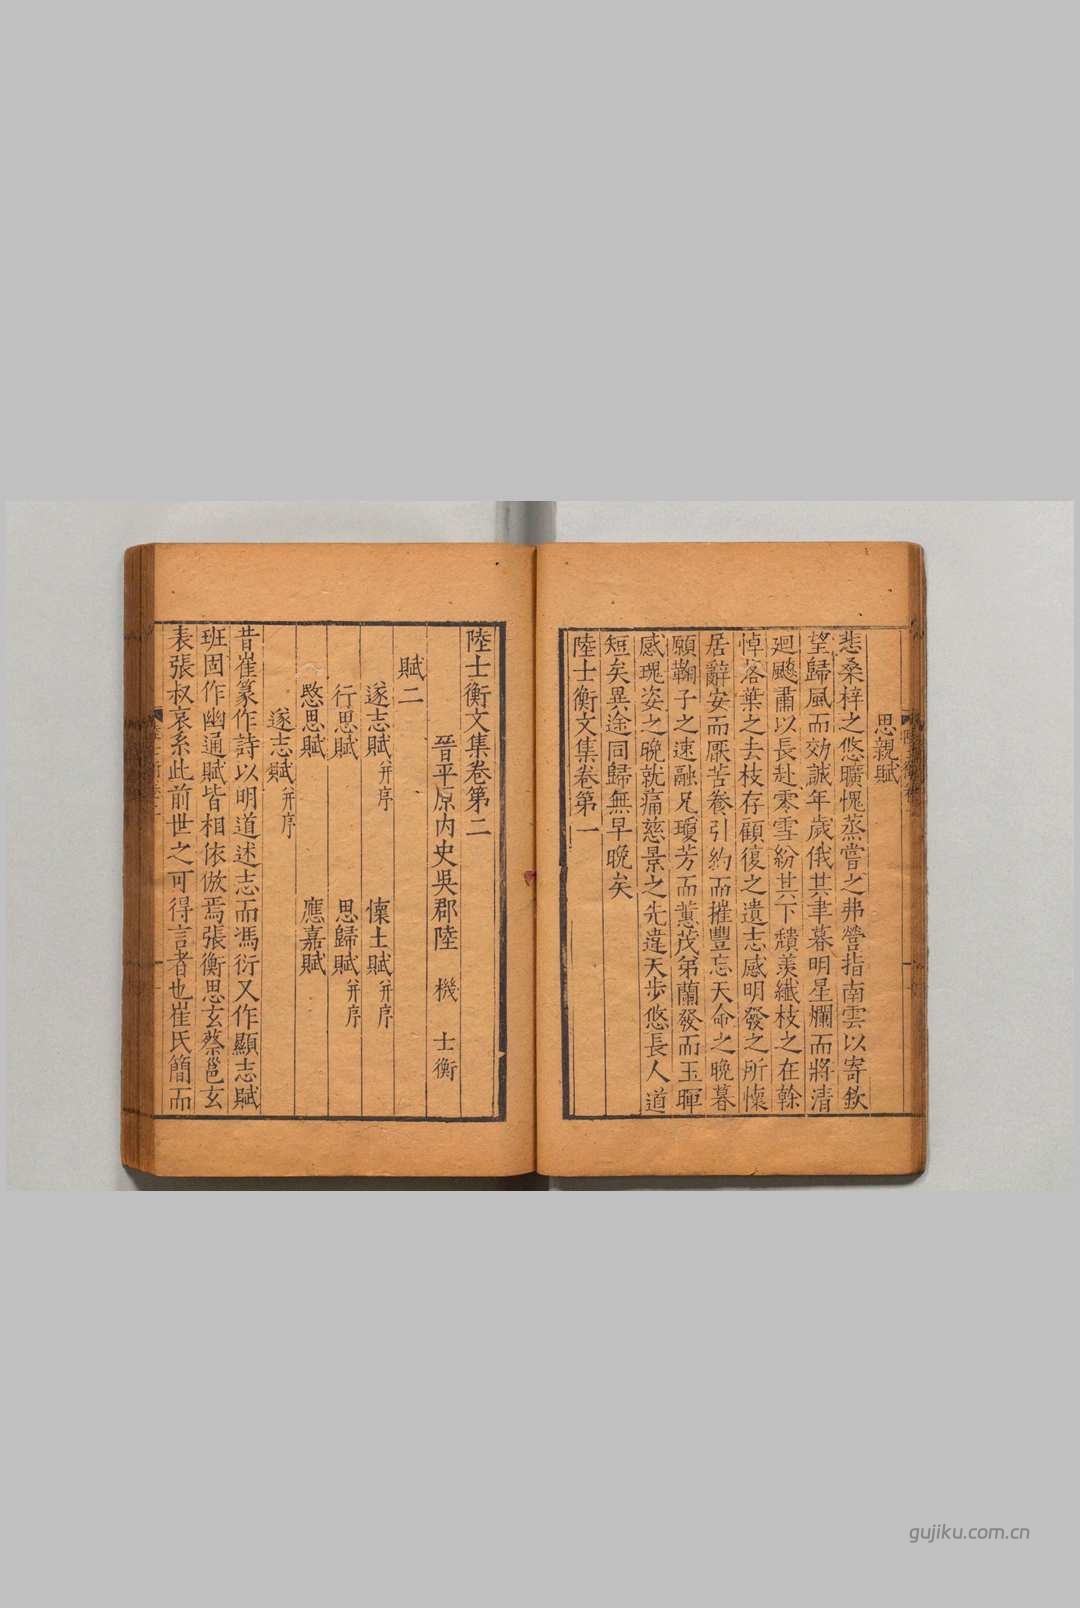 思親賦
悲桑梓之悠曠愧蒸嘗之弗營指南雲以寄欽
望歸風而効誠年歲俄其聿暮明星爛而將清
廻飈肅以長赴零雪紛其下頽羨纖枝之在榦
悼落葉之去枝存顧復之遺志感明發之所懷
居辭安而厭苦養引約而摧豐忘天命之晚暮
願鞠子之速融兄瓊芳而蕙茂弟蘭發而玉暉
感瑰姿之晚就痛慈景之先違天步悠長人道
短矣異途同歸無早晚矣
陸士衡文集卷第一
陸士衡文集卷第二
晉平原内史吳郡陸 機 士衡
賦二
遂志賦并序 懷土賦并序
行思賦 思歸賦并序
愍思賦 應嘉賦
遂志賦并序
昔崔篆作詩以明道述志而馮衍又作顯志賦
班固作幽通賦皆相依倣焉張衡思玄蔡邕玄
表張叔哀系此前世之可得言者也崔氏簡而
gujiku.com.cn